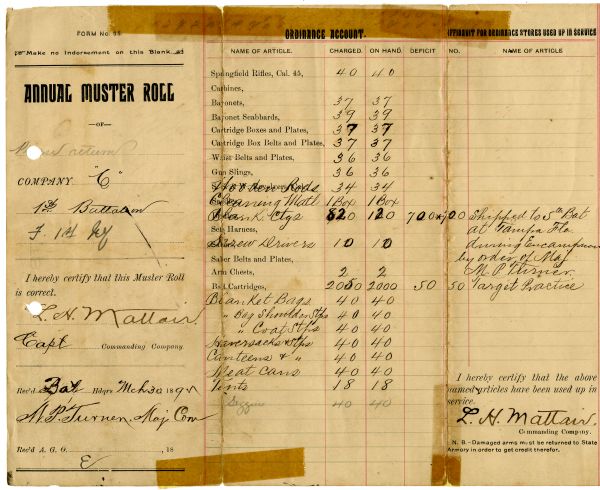 FORM No. 95
Make no Indorsement on this Blank
ANNUAL MUSTER ROLL
—OF—
COMPANY "C"
1st Battalion
F. 1st
I hereby certify that this Muster Roll
is correct.
L. H. Mattair
Capt Commanding Company.
Rec'd Bat Hdqrs Mch 30 189
M. P. Turner, Maj Com
Rec'd A. G. O. 18
ORDINANCE ACCOUNT.
NAME OF ARTICLE. CHARGED. ON HAND. DEFICIT
Springfield Rifles, Cal. 45, 40 40
Carbines,
Bayonets, 37 37
Bayonet Scabbards, 39 39
Cartridge Boxes and Plates, 37 37
Cartridge Box Belts and Plates, 37 37
Waist Belts and Plates, 36 36
Gun Slings, 36 36
Wooden Rods 34 34
Cleaning Matl 1 Box 1 Box
Blank Ctgs 820 120 700
Sets Harness,
Screw Drivers 10 10
Saber Belts and Plates,
Arm Chests, 2 2
Ball Cartridges, 2050 2000 50
Blanket Bags 40 40
" Bag Shoulder Stps 40 40
" Coat Stps 40 40
Haversacks & Stps 40 40
Canteens & " 40 40
Meat Cans 40 40
Tents 18 18
40 40
AFFIDAVIT FOR ORDINANCE STORES USED UP IN SERVICE
NO. NAME OF ARTICLE
700 Shipped to 5th Bat
at Tampa Fla
during Encampment
by order of Maj
M P Turner.
50 Target Practice
I hereby certify that the above
named articles have been used up in
service.
L. H. Mattair
Commanding Company.
N. B.—Damaged arms must be returned to State
Armory in order to get credit therefor.